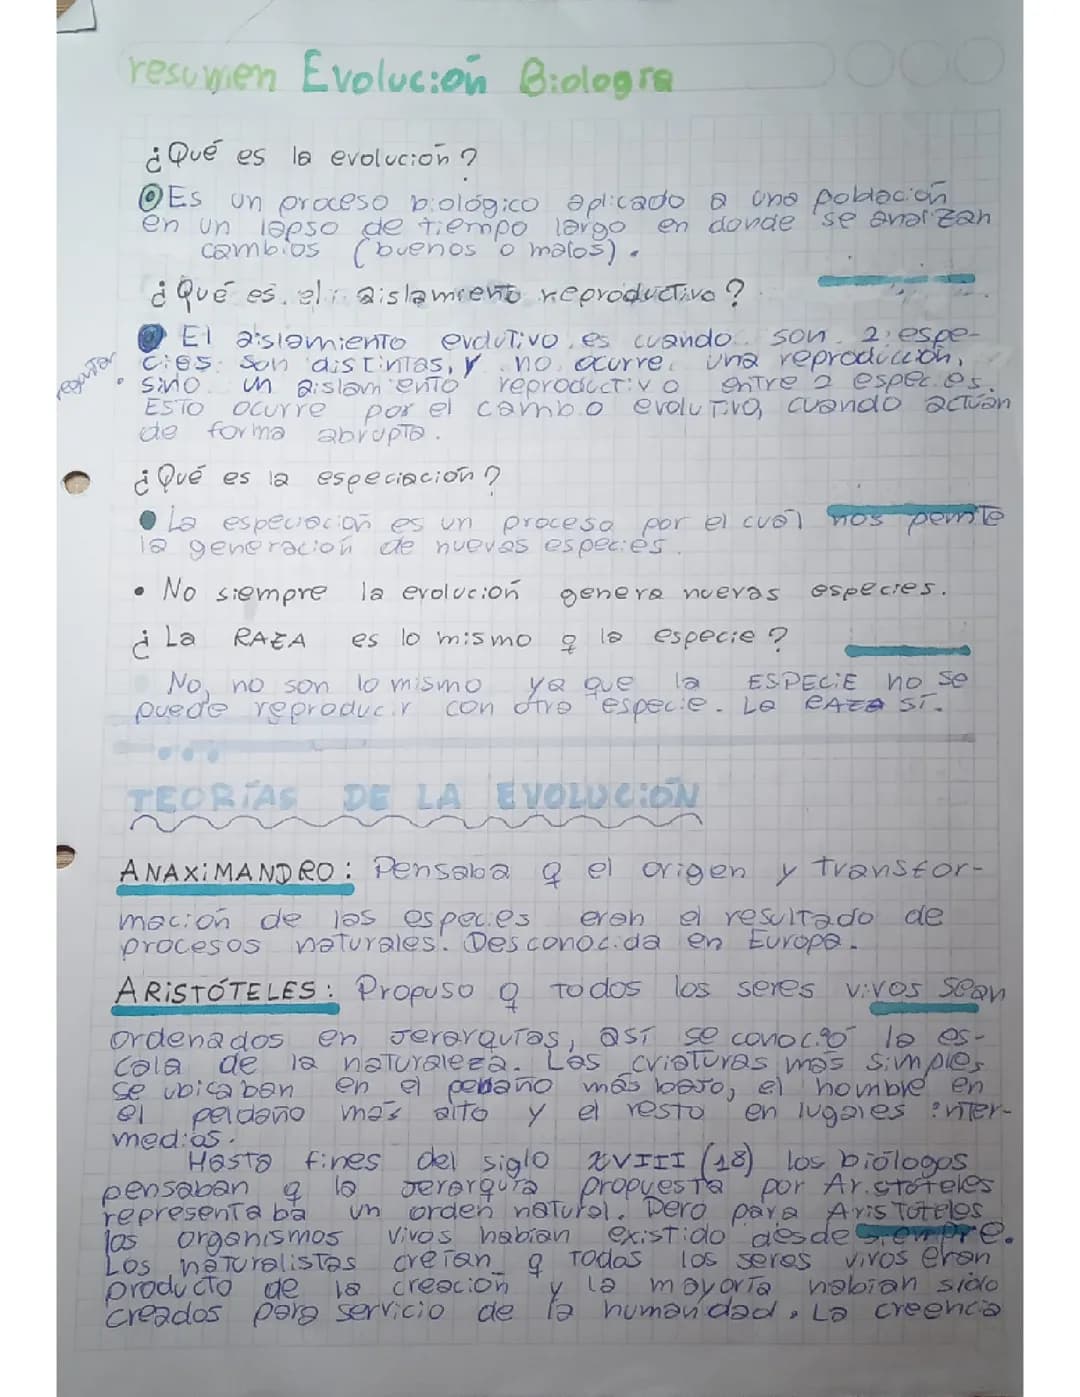 resumen Evolución Biología
¿Qué es la evolución?
Es un proceso biológico aplicado a una población
en un lapso de tiempo largo en donde se analizan
cambios (buenos o malos).
¿Qué es el aislamiento reproductivo?
El aislamiento evolutivo es cuando son 2 espe-
cies son distintas, y no ocurre una reproducción,
sino un aislamiento reproductivo entre 2 especies.
ESTO ocurre por el cambio evolutivo, cuando actúan
de forma abrupta.
¿Qué es la especiación?
La especiación es un proceso por el cual nos permite
la generación de nuevas especies.
• No siempre la evolución genera nuevas especies.
¿La RAZA es lo mismo q la especie?
No, no son lo mismo ya que la ESPECIE no se
puede reproducir con otra especie. La RAZA SÍ.
TEORÍAS DE LA EVOLUCIÓN
ANAXIMANDRO: Pensaba q el origen y transfor-
mación de las especies eran el resultado de
procesos naturales. Desconocida en Europa.
ARISTÓTELES: Propuso q todos los seres vivos sean
ordenados en Jerarquías, así se conoció la es-
cala de la naturaleza. Las criaturas más simples
se ubicaban en el peldaño más bajo, el hombre en
el peldaño más alto y el resto en lugares inter-
medios.
Hasta fines del siglo XVIII (18) los biólogos
pensaban q la Jerarquía propuesta por Aristóteles
representaba un orden natural. Pero para Aristóteles
los organismos vivos habían existido desde siempre.
Los naturalistas creían q todos los seres vivos eran
producto de la creación y la mayoría habían sido
creados para servicio de la humanidad. La creencia